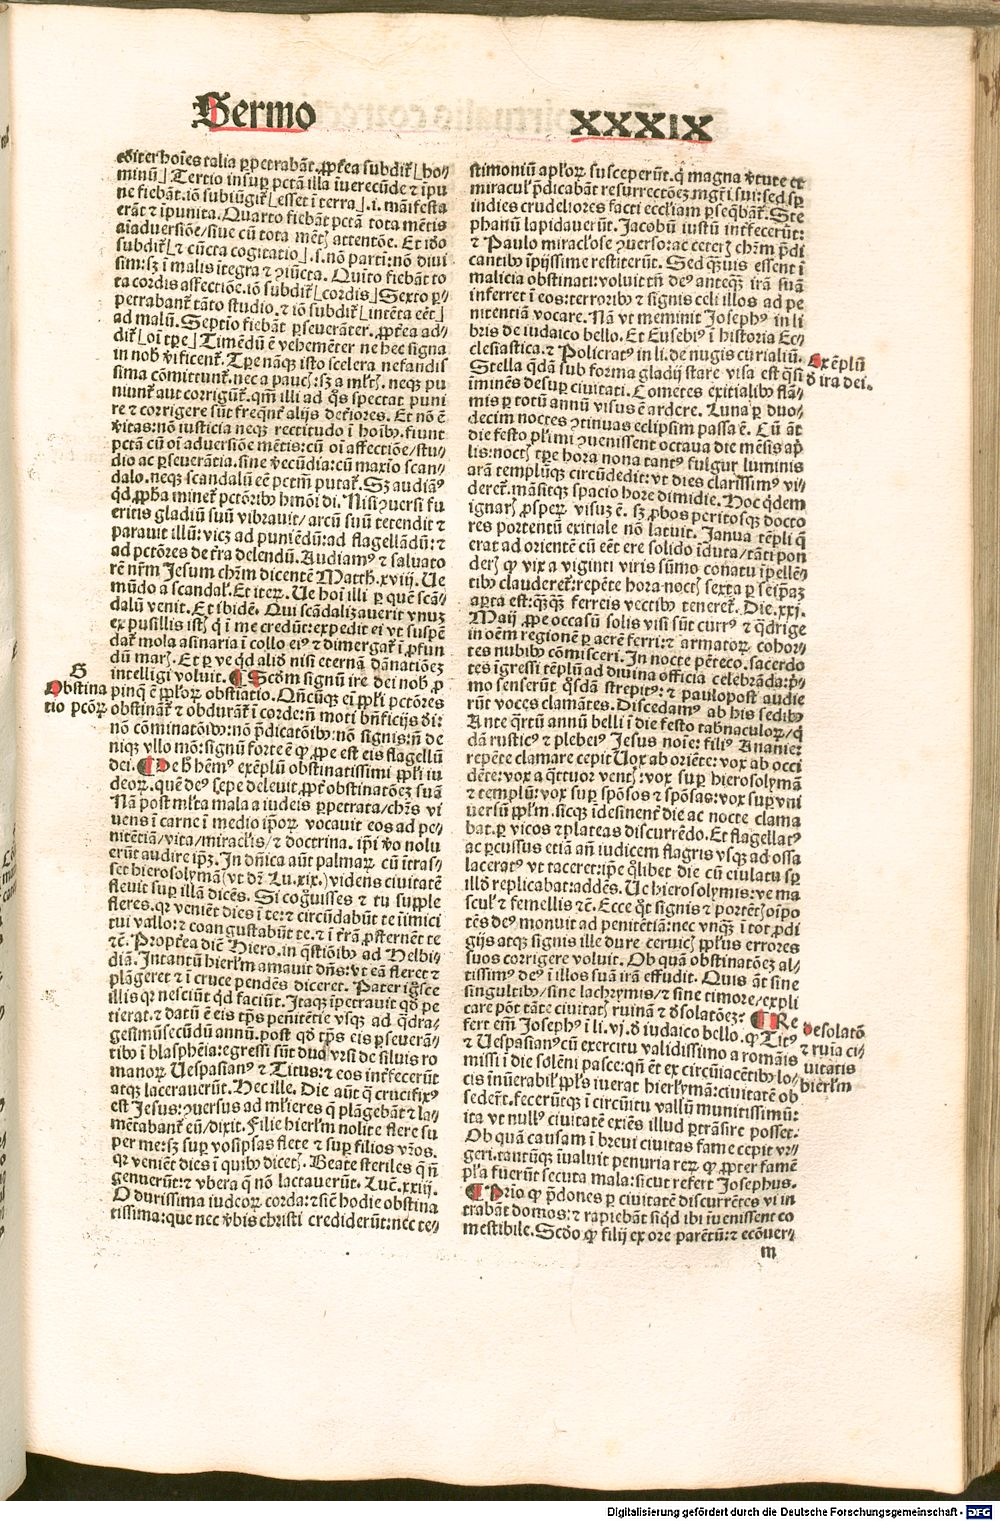 Sermo
XXXIX
editer hoīes talia ꝑpetrabāt. ꝓpt̄ea subdit̄ ⌊ho-
minū⌋ Tertio insuꝑ pctā illa īuerecūde ⁊ īpu
ne fiebāt. iō subiūgit̄ ⌊esset ī terra⌋ .i. māifesta
erāt ⁊ īpunita. Quarto fiebāt pctā tota mētis
aīaduersiōe/siue cū tota mēt attentōe. Et iōo
subdit̄ ⌊⁊ cūcta cogitatio⌋ .s. nō parti: nō diui
sim: sꝫ ī malis ītegra ⁊ ꝯiūcta. Quīto fiebāt to
ta cordis affectiōe. iō subdit̄ ⌊cordis⌋ Sexto ꝑ-
petrabant̄ tāto studio. ⁊ iō subdit̄ ⌊intēta eēt⌋
ad malū. Septīo fiebāt ꝑseuerāter. ꝓpt̄ea ad-
dit̄ ⌊oī tꝑe⌋ Timēdū ē vehemēter ne hec signa
in nob̄ v̄ificent̄. Tꝑe nāqꝫ isto scelera nefandis
sima cōmittunt̄. nec a pauc̄: sꝫ a ml̄t. neqꝫ pu
niunt̄ aut corrigūt̄. qm̄ illi ad qͦs spectat puni
re ⁊ corrigere sūt freqn̄t alijs det̄iores. Et nō ē
v̄itas: nō iusticia neqꝫ rectitudo ī hoīb9. fiunt
pctā cū oī aduersiōe mētis: cū oī affectiōe/stu-
dio ac ꝑseuerātia. sine v̄ecūdia: cū maxīo scan-
dalo. neqꝫ scandalū eē pctm̄ putāt. Sꝫ audiāꝰ
qd̄ ꝓph̄a minet̄ pctōrib9 hmōi di. Nisi ꝯuersi fu
eritis gladiū suū vibrauit/arcū suū tetendit ⁊
parauit illū: vicꝫ ad puniēdū: ad flagellādū: ⁊
ad pctōres de t̄ra delendū. Audiamꝰ ⁊ saluato
rē nr̄m Jesum chr̄m dicentē Matth. xviij. Ue
mūdo a scandal̄. Et iteꝝ. Ue hoī illi ꝑ quē scā-
dalū venit. Et ibidē. Qui scādalizauerit vnuꝫ
ex pusillis isti q̄ ī me credūt: expedit ei vt suspē
dat̄ mola asinaria ī collo eiꝰ ⁊ dimergat̄ ī ꝓfun
dū mar̄. Et ꝑ ve qd̄ aliō nisi eternā dānatiōeꝫ
intelligi voluit. ¶ Scōm signū ire dei nob̄ ꝓ
pinq̄ ē ppl̄oꝝ obstiatio. Qn̄cūqꝫ eī ppl̄i pctōres
obstinant̄ ⁊ obdurāt̄ ī corde: n̄ moti bn̄ficijs di:
nō cōminatōib9: nō p̄dicatōib9: nō signis: n̄ de
niqꝫ vllo mō: signū forte ē ꝙ ꝓpe est eis flagellū
dei. ¶ De h̄ hēmꝰ exēplū obstinatissimi ppl̄i iu
deoꝝ. quē deꝰ sepe deleuit, ꝓpt̄ obstinatōeꝫ suā
Nā post ml̄ta mala a iudeis ꝑpetrata/chr̄s vi
uens ī carne ī medio ip̄oꝝ vocauit eos ad pe-
nitētiā/vita/miracl̄is/⁊ doctrina. ip̄i v̄o nolu
erūt audire ip̄ꝫ. In dn̄ica aūt palmaꝝ cū ītras-
set hierosolymā (vt dr̄ Lu. xix.) videns ciuitatē
fleuit suꝑ illā dicēs. Si cogͦuisses ⁊ tu supple
fleres. qꝛ veniēt dies ī te: ⁊ circūdabūt te īimici
tui vallo: ⁊ coangustabūt te. ⁊ ī t̄rā ꝓsternēt te
⁊c̄. Propt̄ea dic̄ Hiero. in q̄stiōib9 ad Helbi-
diā. Intantū hierl̄m amauit dn̄s: vt eā fleret ⁊
plāgeret ⁊ ī cruce pendēs diceret. Pater igͦsce
illis qꝛ nesciūt qd̄ faciūt. Itaqꝫ īpetrauit qd̄ pe
tierat. ⁊ datū ē eis tp̄s penitētie vsqꝫ ad q̄dra-
gesimūsecūdū annū. post qd̄ tp̄s eis ꝑseuerā-
tib9 ī blasphēia: egressi sūt duo vrsi de siluis ro
manoꝝ Uespasianꝰ ⁊ Titus: ⁊ eos int̄fecerūt
atqꝫ lacerauerūt. Hec ille. Die aūt q̄ crucifixꝰ
est Jesus: ꝯuersus ad ml̄ieres q̄ plāgebāt ⁊ la-
mētabant̄ eū/dixit. Filie hierl̄m nolite flere su
per me: sꝫ suꝑ vosipsas flete ⁊ suꝑ filios vr̄os.
qꝛ veniēt dies ī quib9 dicet̄. Beate steriles q̄ n̄
genuerūt: ⁊ vbera q̄ nō lactauerūt. Luc̄. xxiij.
O durissima iudeoꝝ corda: ⁊ sic̄ hodie obstina
tissima: que nec v̄bis christi crediderūt: nec te-
G
Obstina
tio pctōꝝ
stimoniū apl̄oꝝ susceperūt. q̄ magna v̄tute et
miracul̄ p̄dicabāt resurrectōeꝫ mgr̄i sui: sed sꝑ
indies crudeliores facti eccl̄iam ꝑseq̄bāt̄. Ste
phanū lapidauerūt. Jacobū iustū int̄fecerūt:
⁊ Paulo miracl̄ose ꝯuerso: ac ceteꝝ chr̄m p̄di
cantib9 īpijssime restiterūt. Sed qͣuis essent ī
malicia obstinati: voluit tn̄ deꝰ anteqꝫ irā suā
inferret ī eos: terrorib9 ⁊ signis celi illos ad pe
nitentiā vocare. Nā vt meminit Josephꝰ in li
bris de iudaico bello. Et Eusebiꝰ ī historia Ec
clesiastica. ⁊ Policratꝰ in li. de nugis curialiū.
Stella q̄dā sub forma gladij stare visa est q̄si
īminēs desuꝑ ciuitati. Cometes exitialib9 flā-
mis ꝑ totū annū visus ē ardere. Luna ꝑ duo-
decim noctes ꝯtinuas eclipsim passa ē. Cū āt
die festo ppl̄i mi ꝯuenissent octaua die mēsis ap̄
lis: noct̄ tꝑe hora nona tantꝰ fulgur luminis
arā templūqꝫ circūdedit: vt dies clarissimꝰ vi-
deret̄. māsitqꝫ spacio hore dimidie. Hoc q̄dem
ignar̄ ꝓsperꝝ visuꝫ ē. sꝫ ꝓbos peritosqꝫ docto
res portentū exitiale nō latuit. Janua tēpli q̄
erat ad orientē cū eēt ere solido īduta/tāti pon
der̄ ꝙ vix a viginti viris sūmo conatu īpellēn-
tib9 clauderet̄: repēte hora noct̄ sexta ꝑ seipaꝫ
aꝑta est: q̄qꝫ ferreis vectib9 teneret̄. Die. xxj.
Maij ꝓpe occasū solis visi sūt currꝰ ⁊ q̄drige
in oēm regionē ꝑ aerē ferri: ⁊ armatoꝝ cohor-
tes nubib9 cōmisceri. In nocte pētecō. sacerdo
tes īgressi tēplū ad diuina officia celebrāda: p̄-
mo senserūt qͦsdā strepitꝰ: ⁊ paulopost audie
rūt voces clamātes. Discedamꝰ ab his sedib9
Ante q̄rtū annū belli ī die festo tab̄naculoꝝ/q̄
dā rusticꝰ ⁊ plebeiꝰ Jesus noīe: filiꝰ Ananie:
repēte clamare cepit Uox ab oriēte: vox ab occi
dēte: vox a q̄ttuor vent̄: vox suꝑ hierosolymā
⁊ templū: vox suꝑ spōsos ⁊ spōsas: vox suꝑ vni
uersū ppl̄m. sicqꝫ īdesinent̄ die ac nocte clama
bat. ꝑ vicos ⁊ plateas discurrēdo. Et flagellatꝰ
ac percussus etiā an̄ iudicem flagris vsqꝫ ad ossa
laceratꝰ vt taceret: ip̄e qͦlibet die cū eiulatu sꝑ
illd̄ replicabat: addēs. Ue hierosolymis: ve ma
scul̄ ⁊ femellis ⁊c̄. Ecce qͦt signis ⁊ portēt oīpo
tēs deꝰ monuit ad penitētiā: nec vnqͣꝫ ī tot ꝓdi
gijs atqꝫ signis ille dure ceruic̄ ppl̄us errores
suos corrigere voluit. Ob quā obstinatōeꝫ al-
tissimꝰ deꝰ ī illos suā irā effudit. Quis āt sine
singultib9/sine lachrymis/⁊ sine timore/expli
care pōt tāte ciuitat̄ ruinā ⁊ dsolatōeꝫ? ¶ Re
fert em̄ Josephꝰ ī li. vj. d̄ iudaico bello. ꝙ Titꝰ
⁊ Uespasianꝰ cū exercitu validissimo a romāis
missi ī die solēni pasce: qn̄ ēt ex circūiacētib9 lo-
cis īnūerabil̄ ppl̄s iuerat hierl̄ymā: ciuitatē ob
sederūt. fecerūtqꝫ ī circūitu vallū munitissimū:
ita vt nullꝰ ciuitatē exiēs illud ꝑtrāsire posset.
Ob quā causam ī breui ciuitas fame cepit vr-
geri. tantūqꝫ īualuit penuria reꝝ ꝙ ꝓpter famē
pl̄a fuerūt secuta mala: sicut refert Josephus.
¶ Prio ꝙ p̄dones ꝑ ciuitatē discurrētes vi in
trabāt domos: ⁊ rapiebāt siqd̄ ibi īuenissent co
mestibile. Scd̄o ꝙ filij ex ore parētū: ⁊ ecōuer-
m
Exēplū
d̄ ira dei.
Desolatō
⁊ ruīa ci-
uitatis
hierl̄m
Digitalisierung gefördert durch die Deutsche Forschungsgemeinschaft - DFG